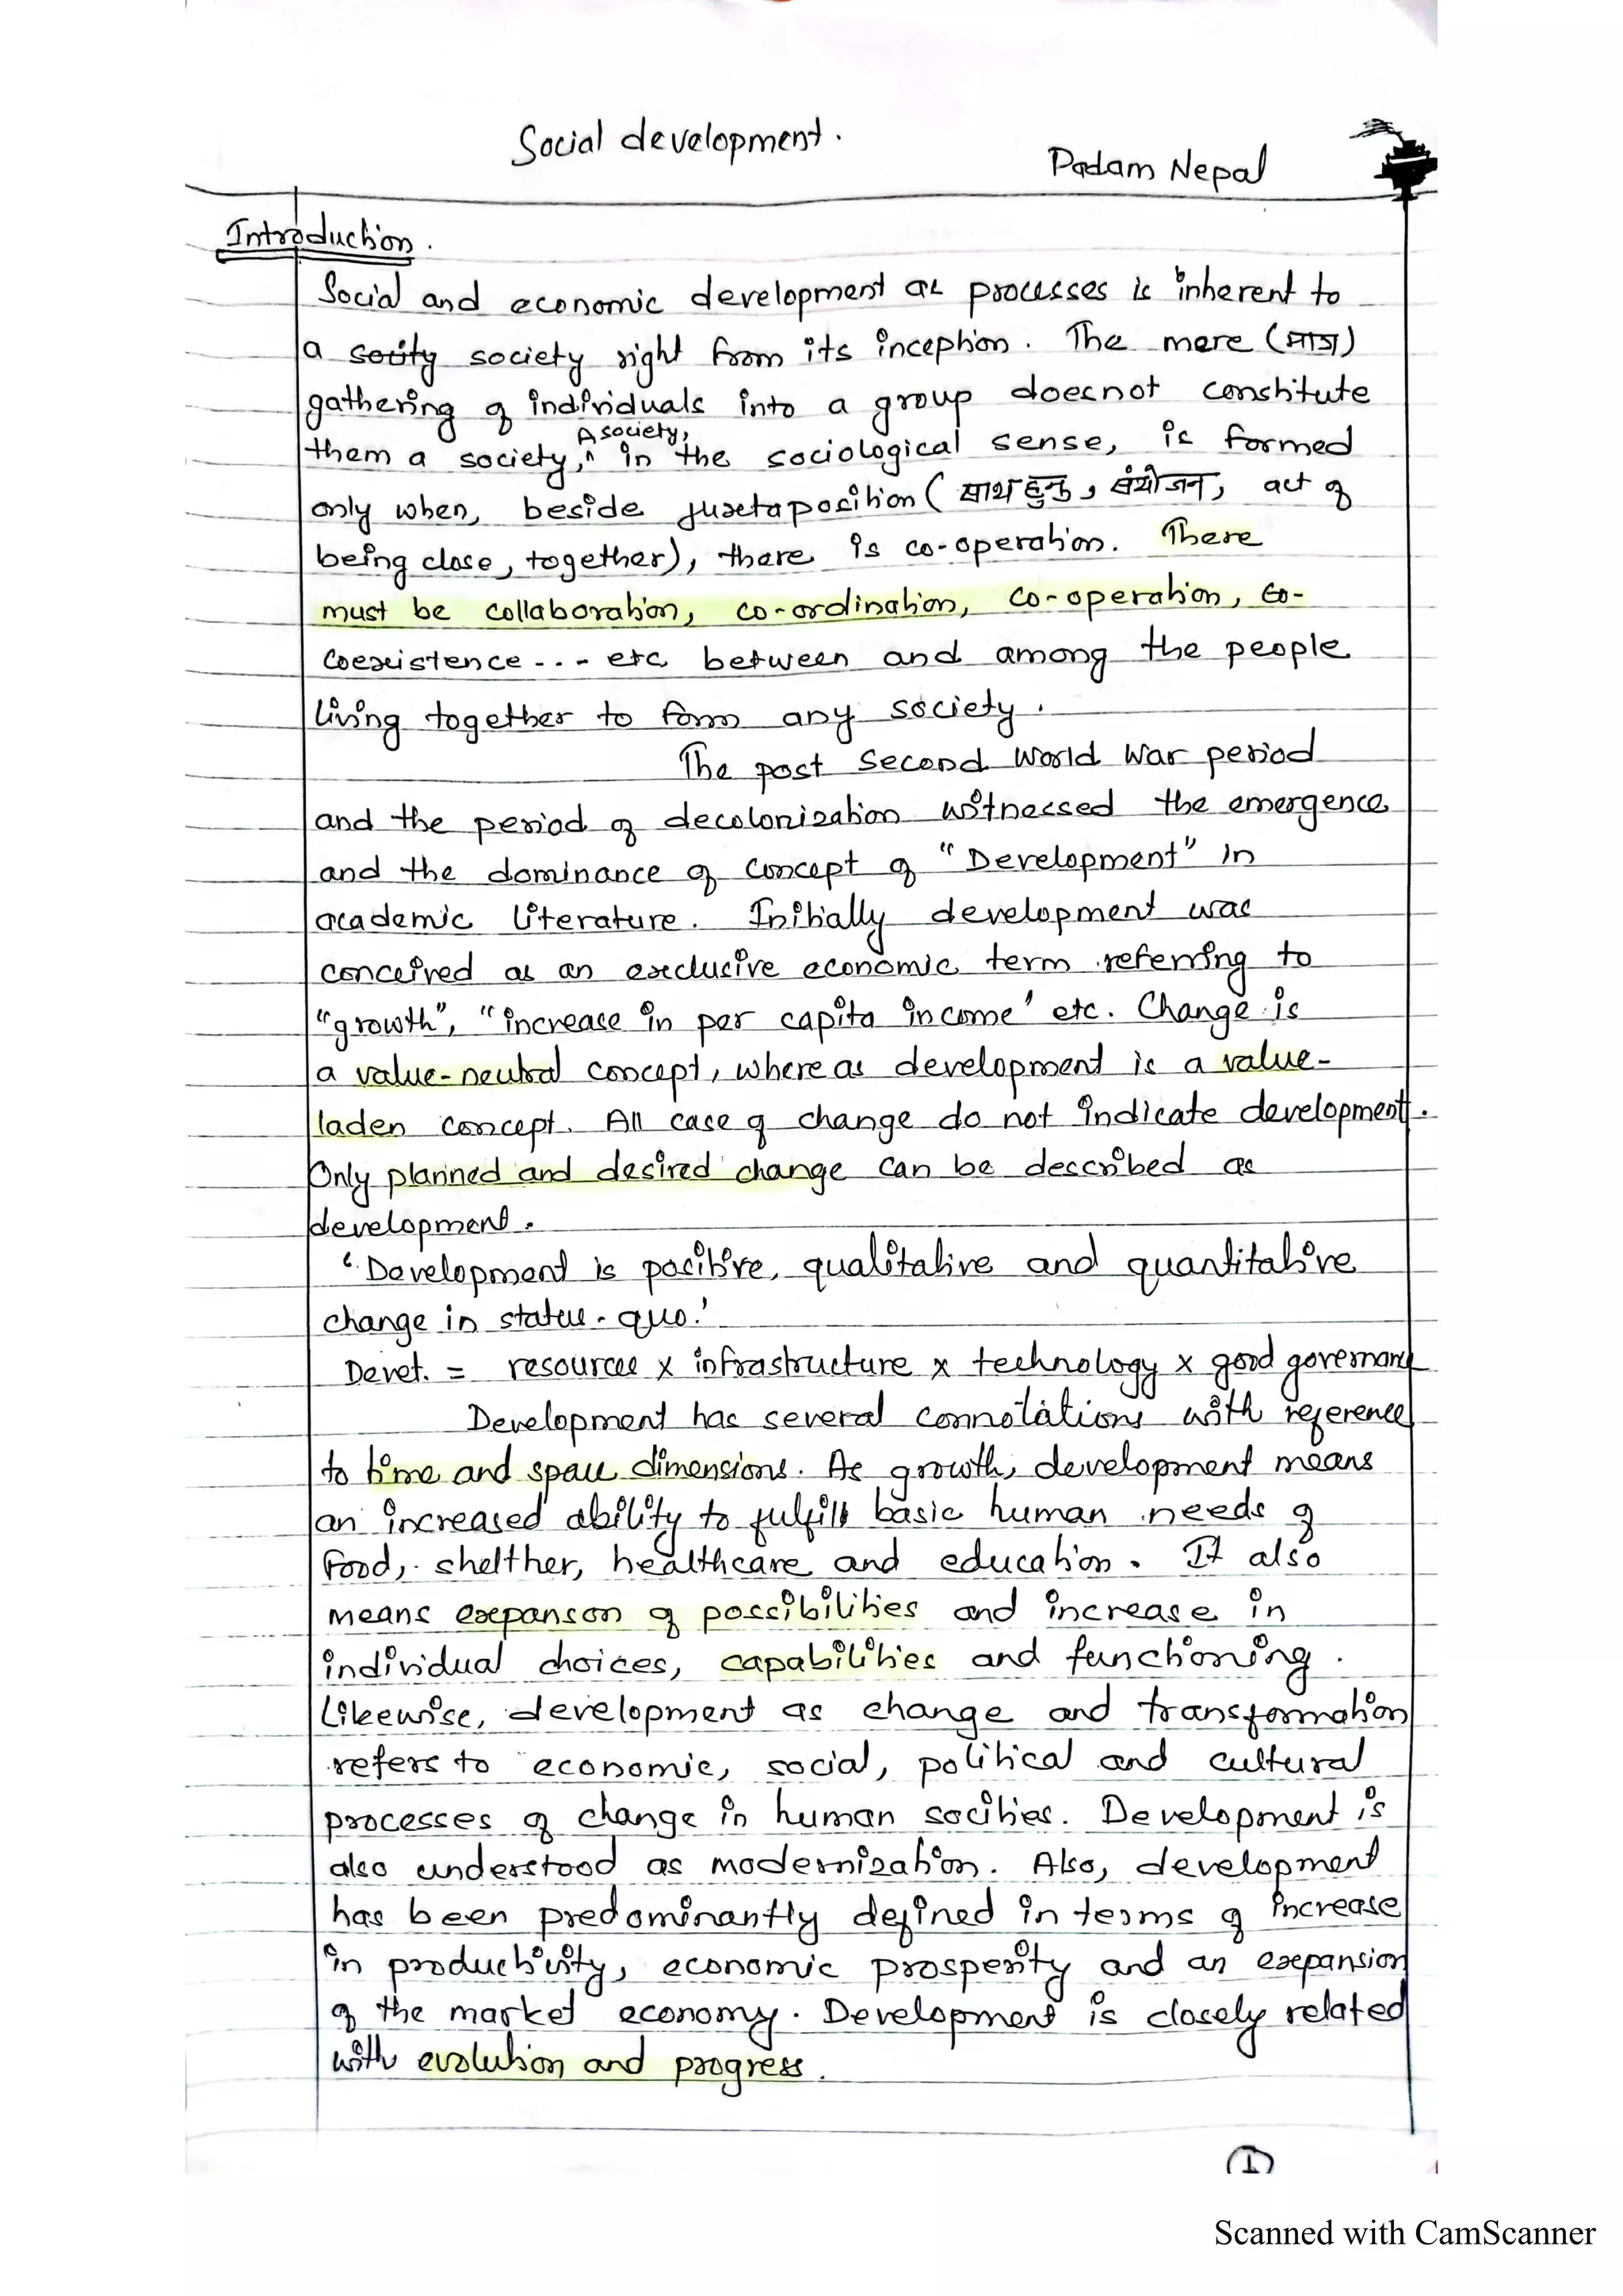 Social development.
Padam Nepal
Introduction.
Social and economic development as processes is inherent to
a society right from its inception. The mere (मात्र)
gathering of individuals into a group doesnot constitute
them a society, A society, in the sociological sense, is formed
only when, beside juxtaposition ( साथ हुनु, संयोजन, act of
being close, together), there is co-operation. There
must be collaboration, co-ordination, co-operation, co-
coexistence ... etc between and among the people
living together to form any society.
The post Second World War period
and the period of decolonization witnessed the emergence
and the dominance of concept of "Development" in
academic literature. Initially development was
conceived as an exclusive economic term referring to
"growth", "increase in per capita income' etc. Change is
a value-neutral concept, where as development is a value-
laden concept. All case of change do not indicate development.
Only planned and desired change can be described as
development.
'Development is positive, qualitative and quantitative
change in status-quo.'
Devet. = resources x infrastructure x technology x good governance
Development has several connotations with reference
to time and space dimensions. As growth, development means
an increased ability to fulfill basic human needs of
food, shelther, healthcare and education. It also
means expanson of possibilities and increase in
individual choices, capabilities and functioning.
Likewise, development as change and transformation
refers to economic, social, political and cultural
processes of change in human socities. Development is
also understood as modernization. Also, development
has been predominantly defined in terms of increase
in productivity, economic prosperity and an expansion
of the market economy. Development is closely related
with evolution and progress.
1
Scanned with CamScanner